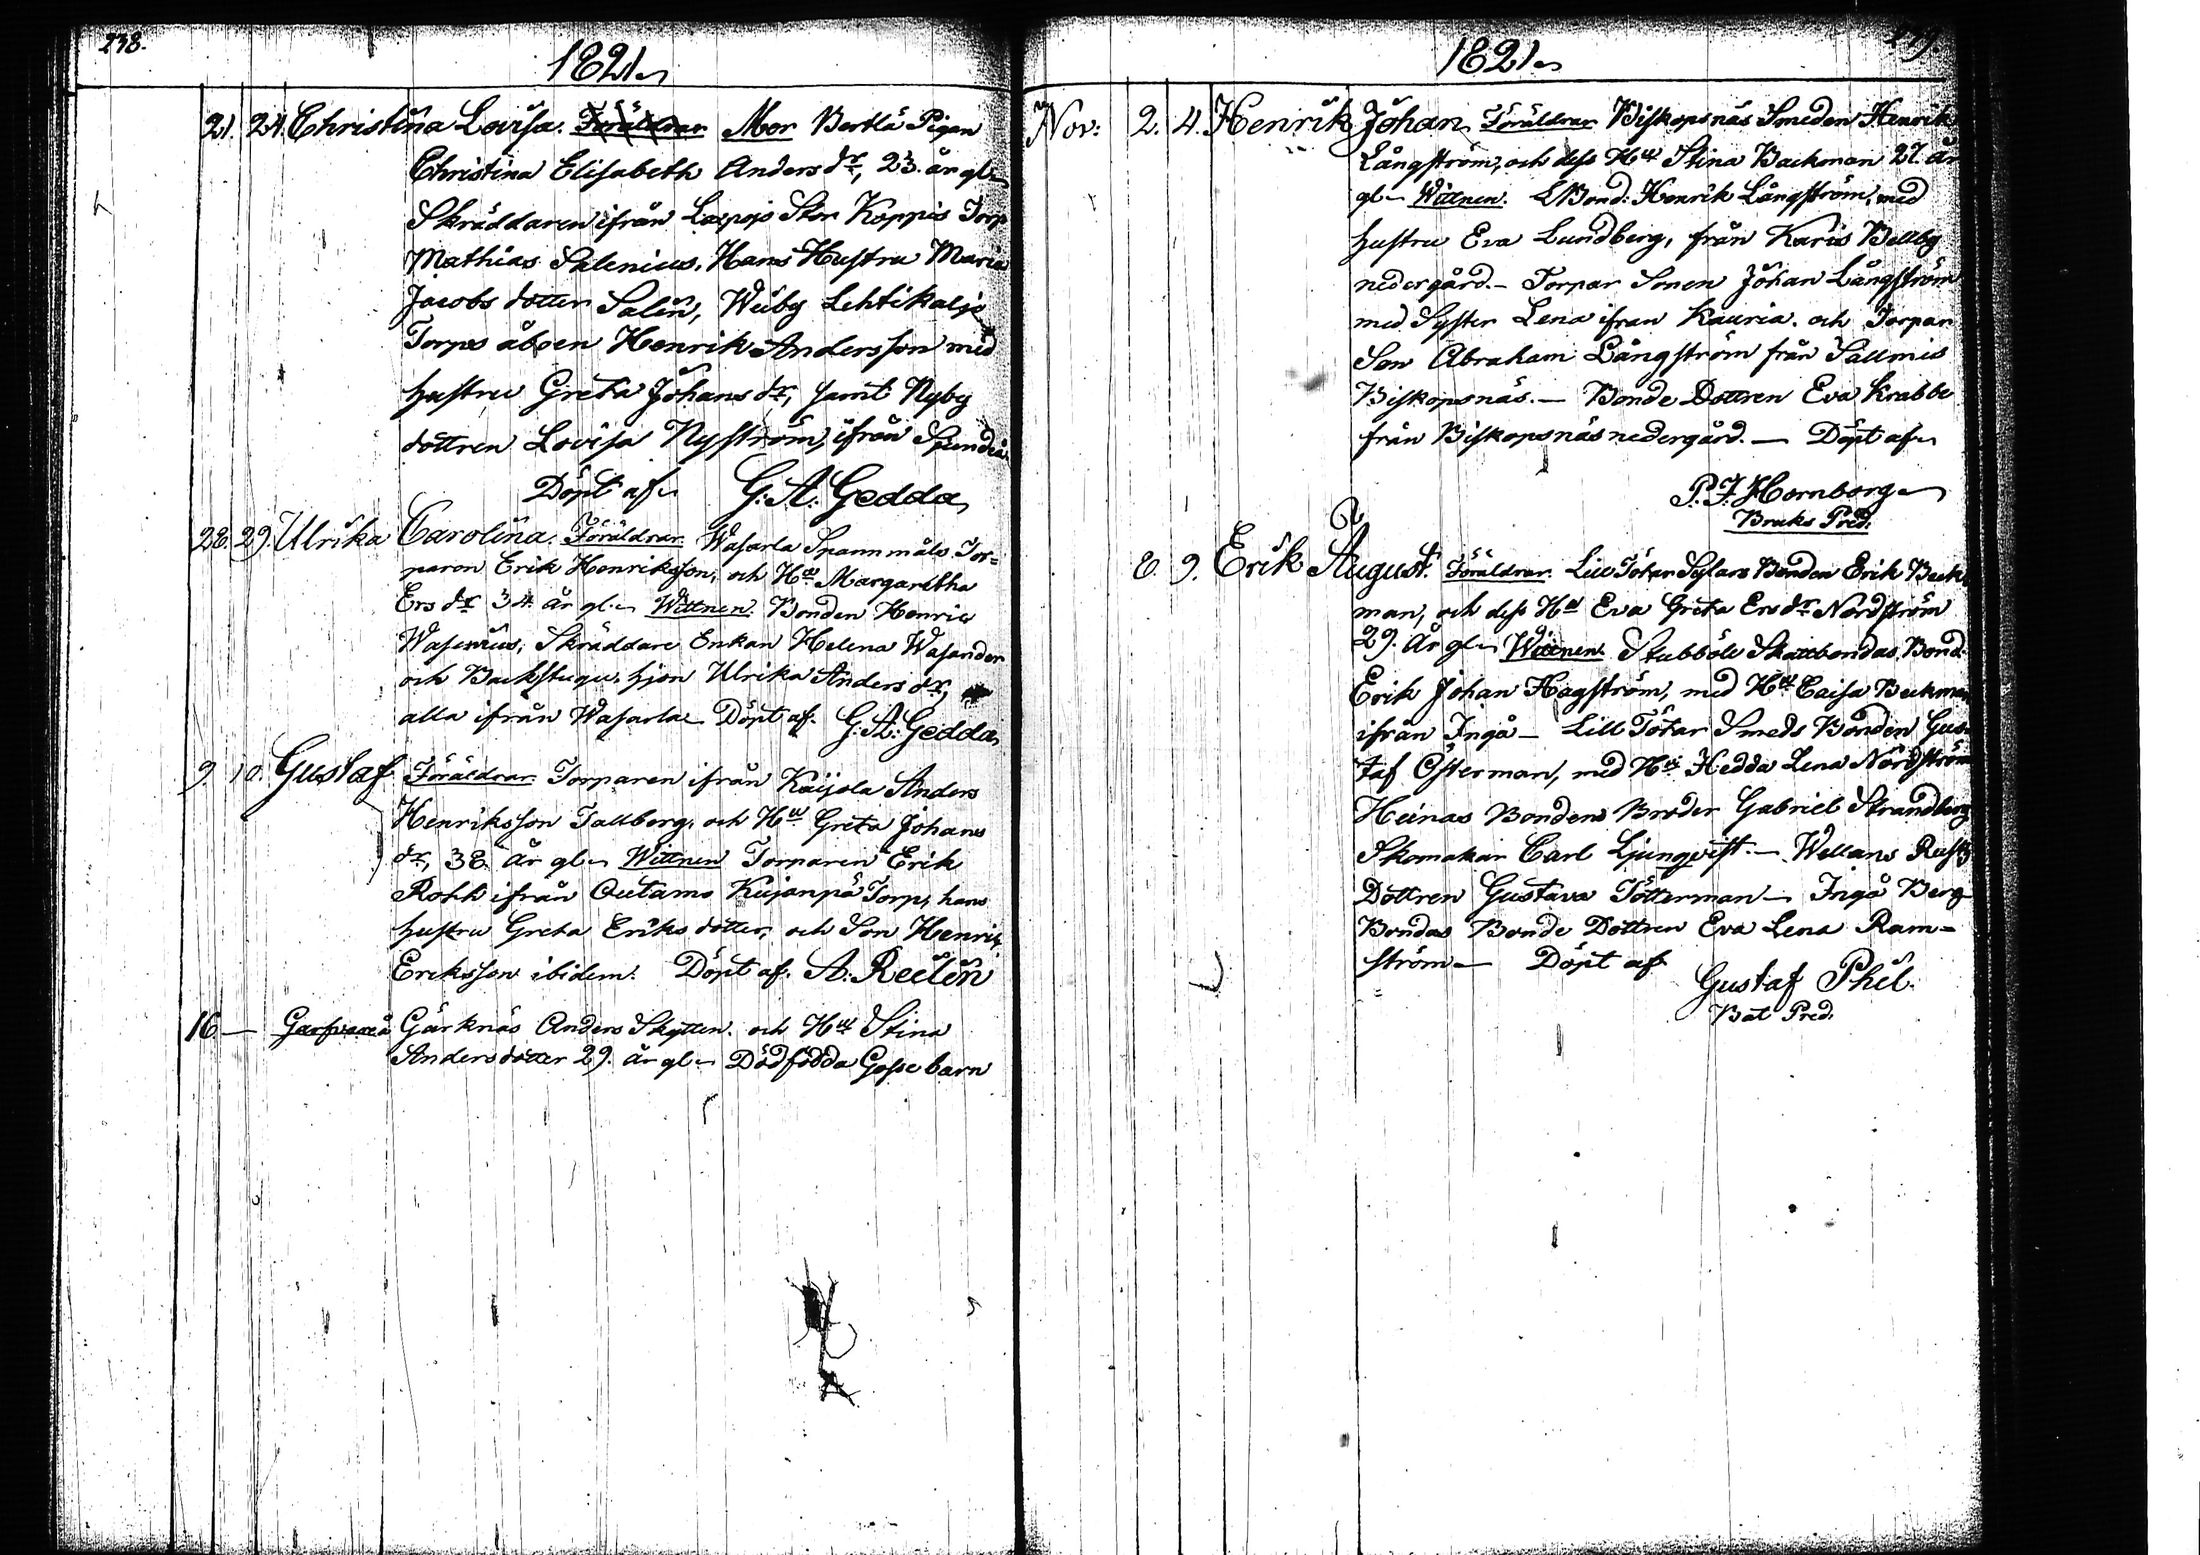 238.
1821
21. 24. Christina Lovisa. Föräldrar Mor Bertlä Pigan
Christina Elisabeth Anders dr, 23. år gl
Skräddaren ifrån Loxpojo Stor Koppis Torp
Mathias Salenius, Hans Hustru Maria
Jacobs dotter Salen, Weiby Lehtikalja
Torps åboen Henrik Andersson med
hustru Greta Johans dr, samt Nyby
dottren Lovisa Nyström, ifrån
Döpt af G: A: Gedda
28. 29. Ulrika Carolina. Föräldrar Wasarla Spannmåls Tor=
paren Erik Henriksson, och Hu Margaretha
Ers dr 34 år gl. Wittnen Bonden Henric
Wasenius, Skräddare Enkan Helena Wasander
och Backstugu hjon Ulrika Anders dr,
alla ifrån Wasarla Döpt af. G: A: Gedda
9. 10. Gustaf Föräldrar Torparen ifrån Kaijola Anders
Henriksson Tallberg, och Hu Greta Johans
dr, 38 år gl Wittnen Torparen Erik
Rohk ifrån Outamo Kujanpä Torp, hans
hustru Greta Eriks dotter, och Son Henric
Eriksson ibidem. Döpt af. A: Reilin
16. — Gerknäs Anders Skytten. och Hu Stina
Andersdotter 29. år gl Dödfödda Gosse barn
239.
1821
Nov: 2. 4. Henrik Johan Föräldrar Biskopsnäs Smeden Henrik
Långström, och dess Hu Stina Backman 27. år
gl Wittnen. Bond: Henrik Långström, med
hustru Eva Lundberg, från Karis Bällby
nedergård. Torpar Sonen Johan Långström
med Syster Lena ifran Kauria. och Torpar
Son Abraham Långström från Sallmis
Biskopsnäs. — Bonde Dottren Eva Krabbe
från Biskopsnäs nedergård. — Döpt af
P. F. Hornborg
Bruks Pred:
8. 9. Erik August. Föräldrar. Lill Tötar Sylars Bonden Erik Beck
man, och dess Hu Eva Greta Ersdr Nordström
29. år gl Wittnen Stubböle Skattbondas Bond.
Erik Johan Hagström, med Hu Caisa Beckman
ifrån Ingå — Lill Tötar Smeds Bonden Gus=
taf Österman, med Hu Hedda Lena Nordström
Heinas Bondens Broder Gabriel Strandberg
Skomakar Carl Ljungqvist. — Wellans Rusth
Dottren Gustava Tötterman — Ingå Berg
Bondas Bonde Dottren Eva Lena Ram=
ström — Döpt af
Gustaf Phil.
Bat Pred.